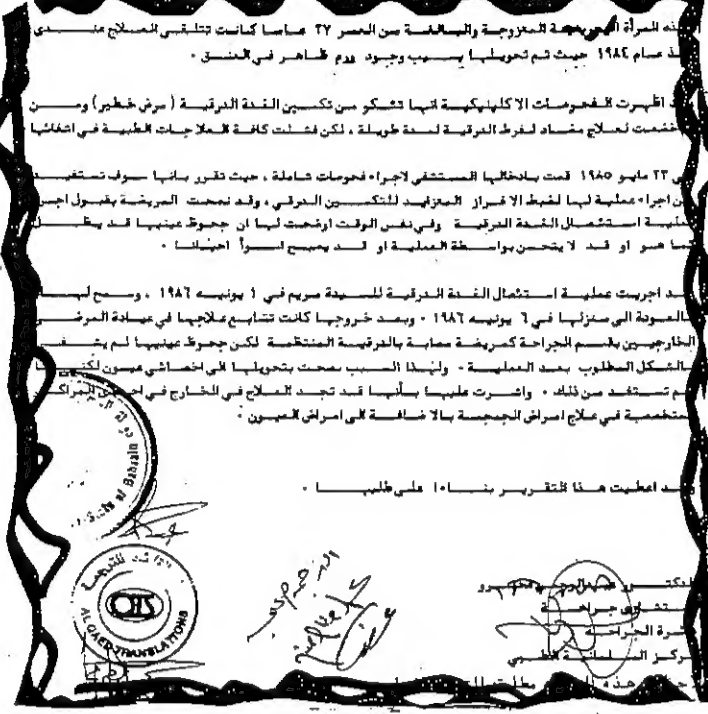 هذه المرأة البحرينية المتزوجة والبالغة من العمر ٢٧ عاما كانت تتلقى العلاج عندى
منذ عام ١٩٨٤ حيث تم تحويلها بسبب وجود ورم ظاهر في العنق .
اظهرت الفحوصات الاكلينيكية انها تشكو من تكسين الغدة الدرقية ( مرض خطير) ومن
خضعت لعلاج مضاد لفرط الدرقية لمدة طويلة ، لكن فشلت كافة العلاجات الطبية في اشفائها
في ٢٣ مايو ١٩٨٥ قمت بادخالها المستشفى لاجراء فحوصات شاملة ، حيث تقرر بانها سوف تستفيد
من اجراء عملية لها لضبط الافراز المتزايد للتكسين الدرقي ، وقد نصحت المريضة بقبول اجراء
عملية استئصال الغدة الدرقية وفي نفس الوقت اوضحت لها ان جحوظ عينيها قد يظل
كما هو او قد لا يتحسن بواسطة العملية او قد يصبح اسوأ احيانا .
اجريت عملية استئصال الغدة الدرقية للسيدة مريم في ١ يونيه ١٩٨٦ ، وسمح لها
بالعودة الى منزلها في ٦ يونيه ١٩٨٦ . وبعد خروجها كانت تتابع علاجها في عيادة المرضى
الخارجيين بقسم الجراحة كمريضة مصابة بالدرقية المنتظمة لكن جحوظ عينيها لم يشفى
بالشكل المطلوب بعد العملية . ولهذا السبب نصحت بتحويلها الى اخصائي عيون لكنها
لم تستفد من ذلك . واشرت عليها بأنها قد تجد العلاج في الخارج في احدى المراكز
متخصصة في علاج امراض الجمجمة بالاضافة الى امراض العيون .
وقد اعطيت هذا التقرير بناءا على طلبها .
دولة البحرين
State of Bahrain
القائد للترجمة
AL QAED TRANSLATIONS
الدكتور
استشارى جراحة
دائرة الجراحة
مركز السلمانية الطبي
هذه